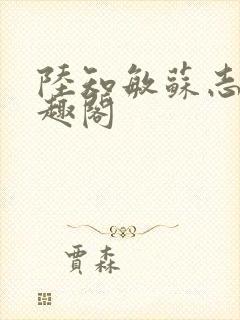 陸知敏蘇志
趣閣
賈森